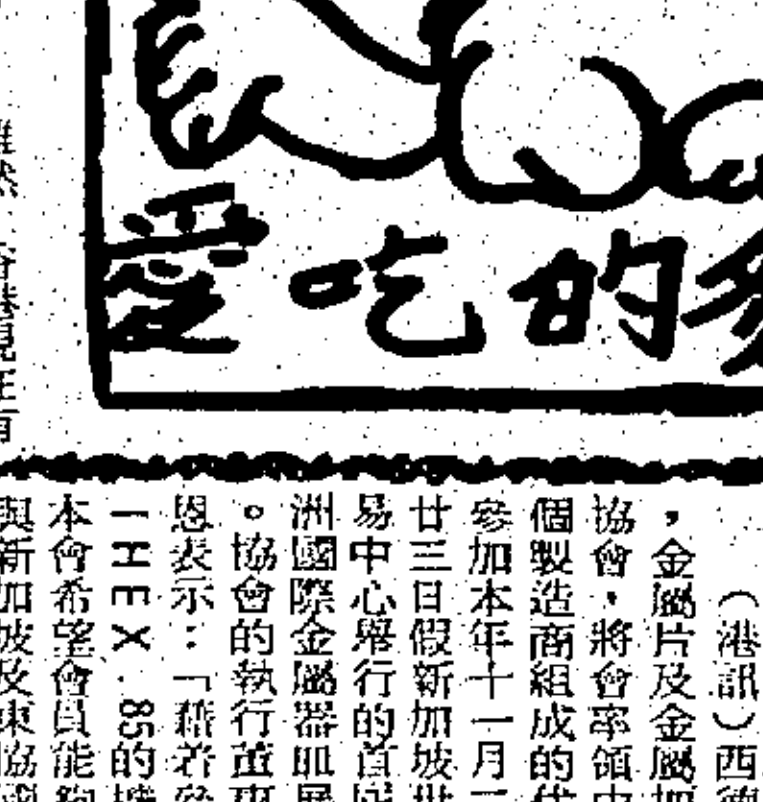 愛吃的
（港訊）西
，金屬片及金屬
協會，將會率領
個製造商組成的
參加本年十一月
廿三日假新加坡世
易中心舉行的首屆
洲國際金屬器皿展
。協會的執行董事
恩表示：「藉着參
IHEX．85的機
本會希望會員能夠
與新加坡及東協
香港現在有